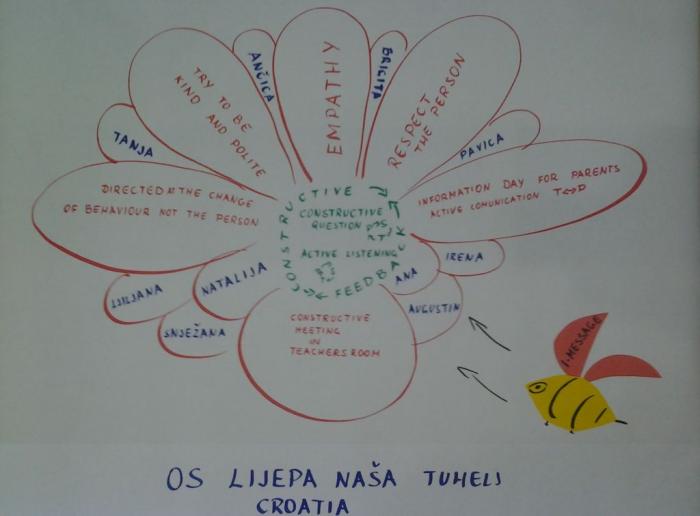 ANČICA
EMPATHY
BRIGITA
TRY TO BE
KIND AND POLITE
RESPECT
THE PERSON
TANJA
PAVICA
DIRECTED AT THE CHANGE
OF BEHAVIOUR NOT THE PERSON
INFORMATION DAY FOR PARENTS
ACTIVE COMUNICATION T↔P
CONSTRUCTIVE
FEEDBACK
CONSTRUCTIVE
QUESTION
ACTIVE LISTENING
LJILJANA
NATALIJA
SNJEŽANA
IRENA
ANA
AUGUSTIN
CONSTRUCTIVE
MEETING
IN
TEACHERS ROOM
I-MESSAGE
OS LIJEPA NAŠA TUHELJ
CROATIA